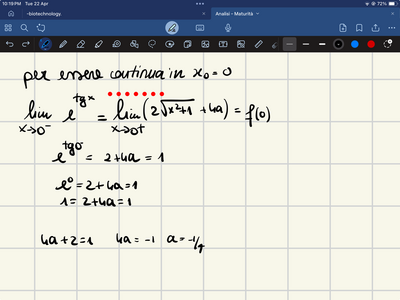 10:19 PM Tue 22 Apr
72%
-biotechnology. Analisi - Maturità
per essere continua in x₀ = 0
lim x→0⁻ e^(tg x) = lim x→0⁺ (2√(x²+1) + 4a) = f(0)
e^(tg 0) = 2+4a = 1
e⁰ = 2+4a = 1
1 = 2+4a = 1
4a+2=1 4a = -1 a = -1/4